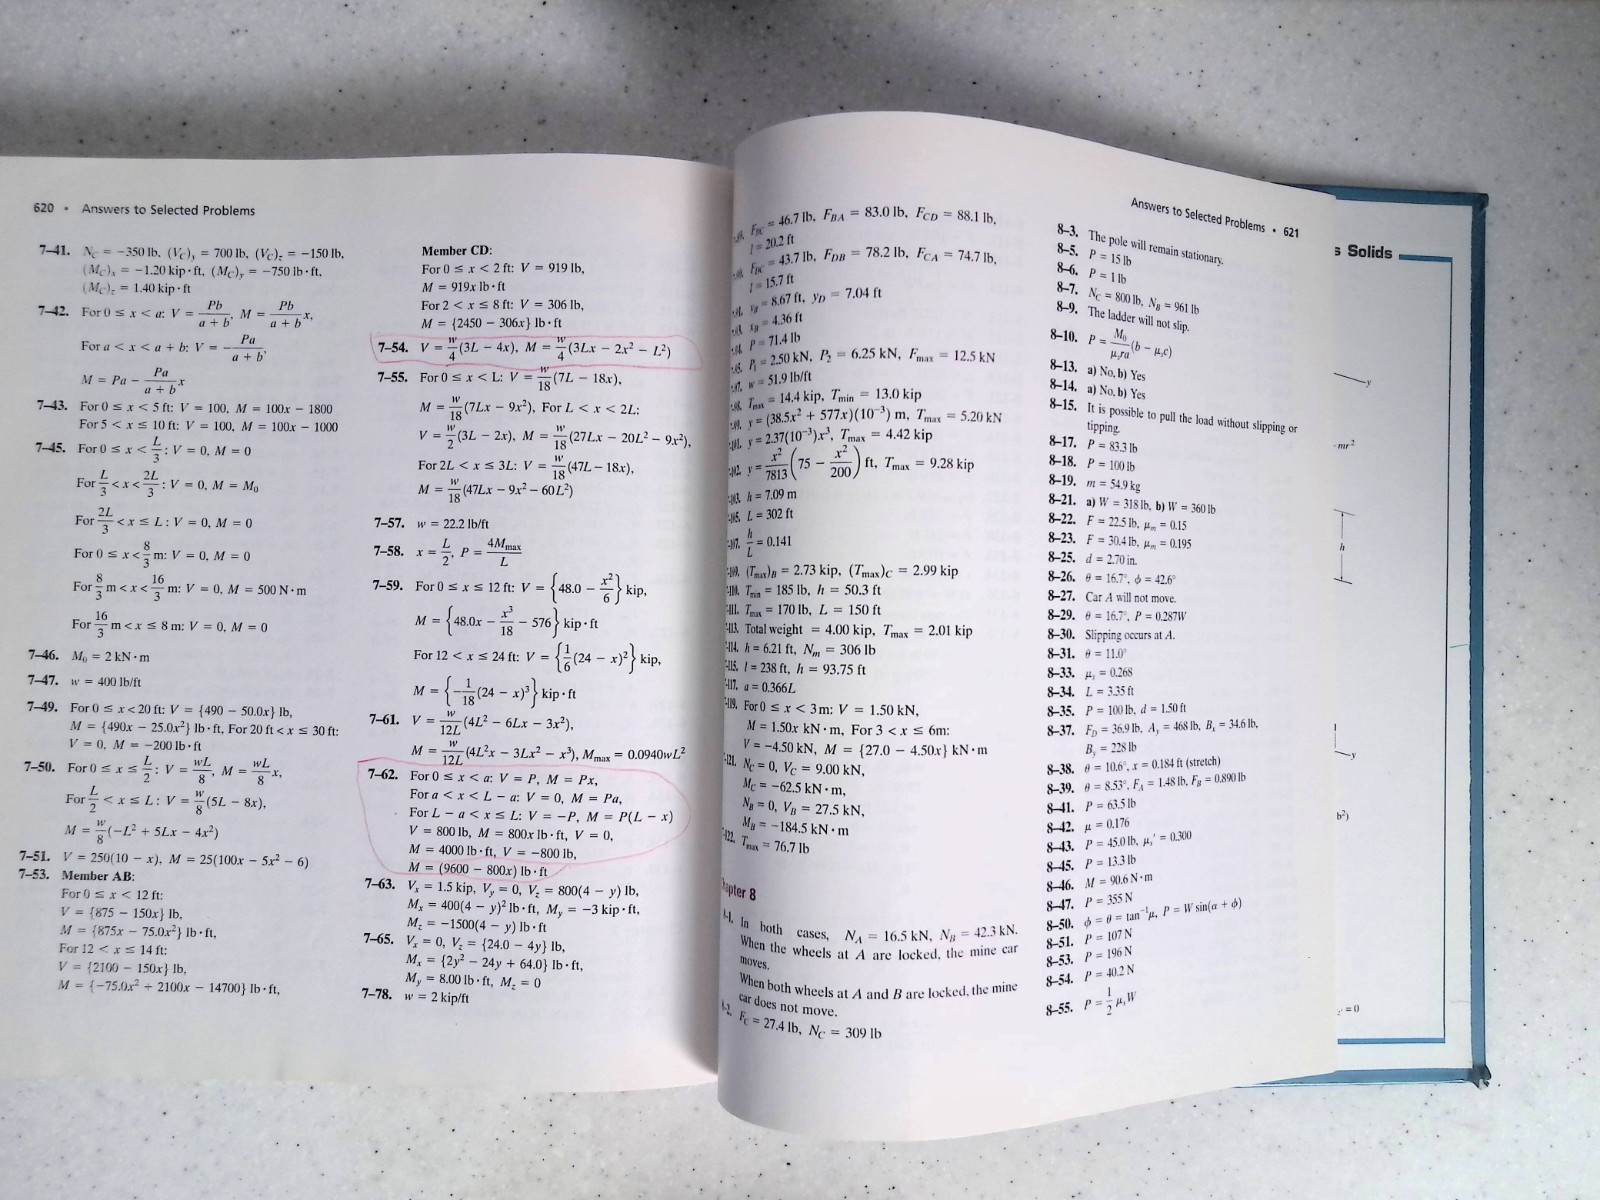 620 • Answers to Selected Problems
7–41. N_C = −350 lb, (V_C)_y = 700 lb, (V_C)_z = −150 lb,
(M_C)_x = −1.20 kip·ft, (M_C)_y = −750 lb·ft,
(M_C)_z = 1.40 kip·ft
7–42. For 0 ≤ x < a: V = Pb/(a + b), M = Pb/(a + b) x,
For a < x < a + b: V = − Pa/(a + b),
M = Pa − Pa/(a + b) x
7–43. For 0 ≤ x < 5 ft: V = 100, M = 100x − 1800
For 5 < x ≤ 10 ft: V = 100, M = 100x − 1000
7–45. For 0 ≤ x < L/3: V = 0, M = 0
For L/3 < x < 2L/3: V = 0, M = M₀
For 2L/3 < x ≤ L: V = 0, M = 0
For 0 ≤ x < 8/3 m: V = 0, M = 0
For 8/3 m < x < 16/3 m: V = 0, M = 500 N·m
For 16/3 m < x ≤ 8 m: V = 0, M = 0
7–46. M₀ = 2 kN·m
7–47. w = 400 lb/ft
7–49. For 0 ≤ x < 20 ft: V = {490 − 50.0x} lb,
M = {490x − 25.0x²} lb·ft, For 20 ft < x ≤ 30 ft:
V = 0, M = −200 lb·ft
7–50. For 0 ≤ x ≤ L/2: V = wL/8, M = wL/8 x,
For L/2 < x ≤ L: V = w/8 (5L − 8x),
M = w/8 (−L² + 5Lx − 4x²)
7–51. V = 250(10 − x), M = 25(100x − 5x² − 6)
7–53. Member AB:
For 0 ≤ x < 12 ft:
V = {875 − 150x} lb,
M = {875x − 75.0x²} lb·ft,
For 12 < x ≤ 14 ft:
V = {2100 − 150x} lb,
M = {−75.0x² + 2100x − 14700} lb·ft,
Member CD:
For 0 ≤ x < 2 ft: V = 919 lb,
M = 919x lb·ft
For 2 < x ≤ 8 ft: V = 306 lb,
M = {2450 − 306x} lb·ft
7–54. V = w/4 (3L − 4x), M = w/4 (3Lx − 2x² − L²)
7–55. For 0 ≤ x < L: V = w/18 (7L − 18x),
M = w/18 (7Lx − 9x²), For L < x < 2L:
V = w/2 (3L − 2x), M = w/18 (27Lx − 20L² − 9x²),
For 2L < x ≤ 3L: V = w/18 (47L − 18x),
M = w/18 (47Lx − 9x² − 60L²)
7–57. w = 22.2 lb/ft
7–58. x = L/2, P = 4M_max/L
7–59. For 0 ≤ x ≤ 12 ft: V = {48.0 − x²/6} kip,
M = {48.0x − x³/18 − 576} kip·ft
For 12 < x ≤ 24 ft: V = {1/6 (24 − x)²} kip,
M = {−1/18 (24 − x)³} kip·ft
7–61. V = w/12L (4L² − 6Lx − 3x²),
M = w/12L (4L²x − 3Lx² − x³), M_max = 0.0940wL²
7–62. For 0 ≤ x < a: V = P, M = Px,
For a < x < L − a: V = 0, M = Pa,
For L − a < x ≤ L: V = −P, M = P(L − x)
V = 800 lb, M = 800x lb·ft, V = 0,
M = 4000 lb·ft, V = −800 lb,
M = (9600 − 800x) lb·ft
7–63. V_x = 1.5 kip, V_y = 0, V_z = 800(4 − y) lb,
M_x = 400(4 − y)² lb·ft, M_y = −3 kip·ft,
M_z = −1500(4 − y) lb·ft
7–65. V_x = 0, V_z = {24.0 − 4y} lb,
M_x = {2y² − 24y + 64.0} lb·ft,
M_y = 8.00 lb·ft, M_z = 0
7–78. w = 2 kip/ft
Answers to Selected Problems • 621
= 46.7 lb, F_BA = 83.0 lb, F_CD = 88.1 lb,
l = 20.2 ft
= 43.7 lb, F_DB = 78.2 lb, F_CA = 74.7 lb,
l = 15.7 ft
= 8.67 ft, y_D = 7.04 ft
= 4.36 ft
P = 71.4 lb
P₁ = 2.50 kN, P₂ = 6.25 kN, F_max = 12.5 kN
w = 51.9 lb/ft
T_max = 14.4 kip, T_min = 13.0 kip
y = (38.5x² + 577x)(10⁻³) m, T_max = 5.20 kN
y = 2.37(10⁻³)x³, T_max = 4.42 kip
y = x²/7813 (75 − x²/200) ft, T_max = 9.28 kip
h = 7.09 m
L = 302 ft
h/L = 0.141
(T_max)_B = 2.73 kip, (T_max)_C = 2.99 kip
T_min = 185 lb, h = 50.3 ft
T_max = 170 lb, L = 150 ft
Total weight = 4.00 kip, T_max = 2.01 kip
h = 6.21 ft, N_m = 306 lb
l = 238 ft, h = 93.75 ft
a = 0.366L
For 0 ≤ x < 3 m: V = 1.50 kN,
M = 1.50x kN·m, For 3 < x ≤ 6m:
V = −4.50 kN, M = {27.0 − 4.50x} kN·m
N_C = 0, V_C = 9.00 kN,
M_C = −62.5 kN·m,
N_B = 0, V_B = 27.5 kN,
M_B = −184.5 kN·m
T_max = 76.7 lb
apter 8
In both cases, N_A = 16.5 kN, N_B = 42.3 kN.
When the wheels at A are locked, the mine car
moves.
When both wheels at A and B are locked, the mine
car does not move.
F_C = 27.4 lb, N_C = 309 lb
8–3. The pole will remain stationary.
8–5. P = 15 lb
8–6. P = 1 lb
8–7. N_C = 800 lb, N_B = 961 lb
8–9. The ladder will not slip.
8–10. P = M₀/(μ_s ra) (b − μ_s c)
8–13. a) No, b) Yes
8–14. a) No, b) Yes
8–15. It is possible to pull the load without slipping or
tipping.
8–17. P = 83.3 lb
8–18. P = 100 lb
8–19. m = 54.9 kg
8–21. a) W = 318 lb, b) W = 360 lb
8–22. F = 22.5 lb, μ_m = 0.15
8–23. F = 30.4 lb, μ_m = 0.195
8–25. d = 2.70 in.
8–26. θ = 16.7°, ϕ = 42.6°
8–27. Car A will not move.
8–29. θ = 16.7°, P = 0.287W
8–30. Slipping occurs at A.
8–31. θ = 11.0°
8–33. μ_s = 0.268
8–34. L = 3.35 ft
8–35. P = 100 lb, d = 1.50 ft
8–37. F_D = 36.9 lb, A_y = 468 lb, B_x = 34.6 lb,
B_y = 228 lb
8–38. θ = 10.6°, x = 0.184 ft (stretch)
8–39. θ = 8.53°, F_A = 1.48 lb, F_B = 0.890 lb
8–41. P = 63.5 lb
8–42. μ = 0.176
8–43. P = 45.0 lb, μ_s′ = 0.300
8–45. P = 13.3 lb
8–46. M = 90.6 N·m
8–47. P = 355 N
8–50. ϕ = θ = tan⁻¹μ, P = W sin(α + ϕ)
8–51. P = 107 N
8–53. P = 196 N
8–54. P = 40.2 N
8–55. P = 1/2 μ_s W
Solids
y
mr²
h
y
b²)
= 0